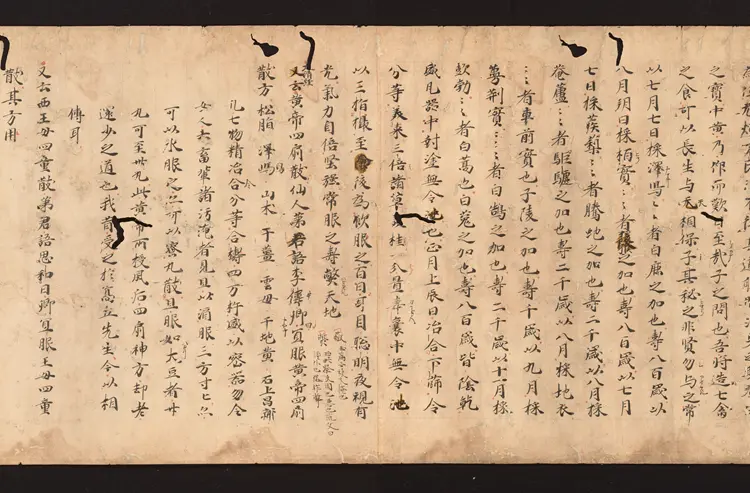 之寶中黄乃仰而歎曰至哉子之問也吾將造七禽
之食可以長生与天相保子其秘之非賢勿与之常
以七月七日採澤瀉〻〻者白鹿之加也壽八百歲以
八月朔日採柏實〻〻者猨之加也壽八百歲以七月
七日採蒺蔾〻〻者騰虵之加也壽二千歲以八月採
菴蘆〻〻者駏驉之加也壽二千歲以八月採地衣
〻〻者車前實也子陵之加也壽千歲以九月採
蔓荊實〻〻者白鵠之加也壽二千歲以十一月採
彭勃〻〻者白蒿也白菟之加也壽八百歲皆陰乾
盛瓦器中封塗無令洩也正月上辰日冶合下篩令
分等美桒三倍諸草美桂一分置韋囊中無令洩
以三指撮至食後為飲服之百日耳目聰明夜視有
光氣力自倍堅強常服之壽弊天地
又云黄帝四扇散仙人茅君語李偉卿宜服黄帝四扇
散方 松脂 澤瀉 山木 干薑 雲母 干地黄 石上菖蒲
凡七物精治合分等合擣四万杵盛以密器勿令
女人六畜輩諸汚淹者見旦以酒服三方寸匕亦
可以水服之亦可以蜜丸散旦服如大豆者廿
丸可至卅丸此黄帝所授風后四扇神方却老
還少之道也我昔受之於高丘先生今以相
傳耳
又云西王母四童散茅君語思和曰卿宜服王母四童
散其方用